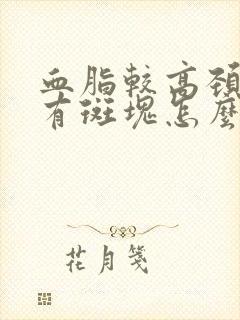 血脂較高頚
有斑塊怎麼
花月箋